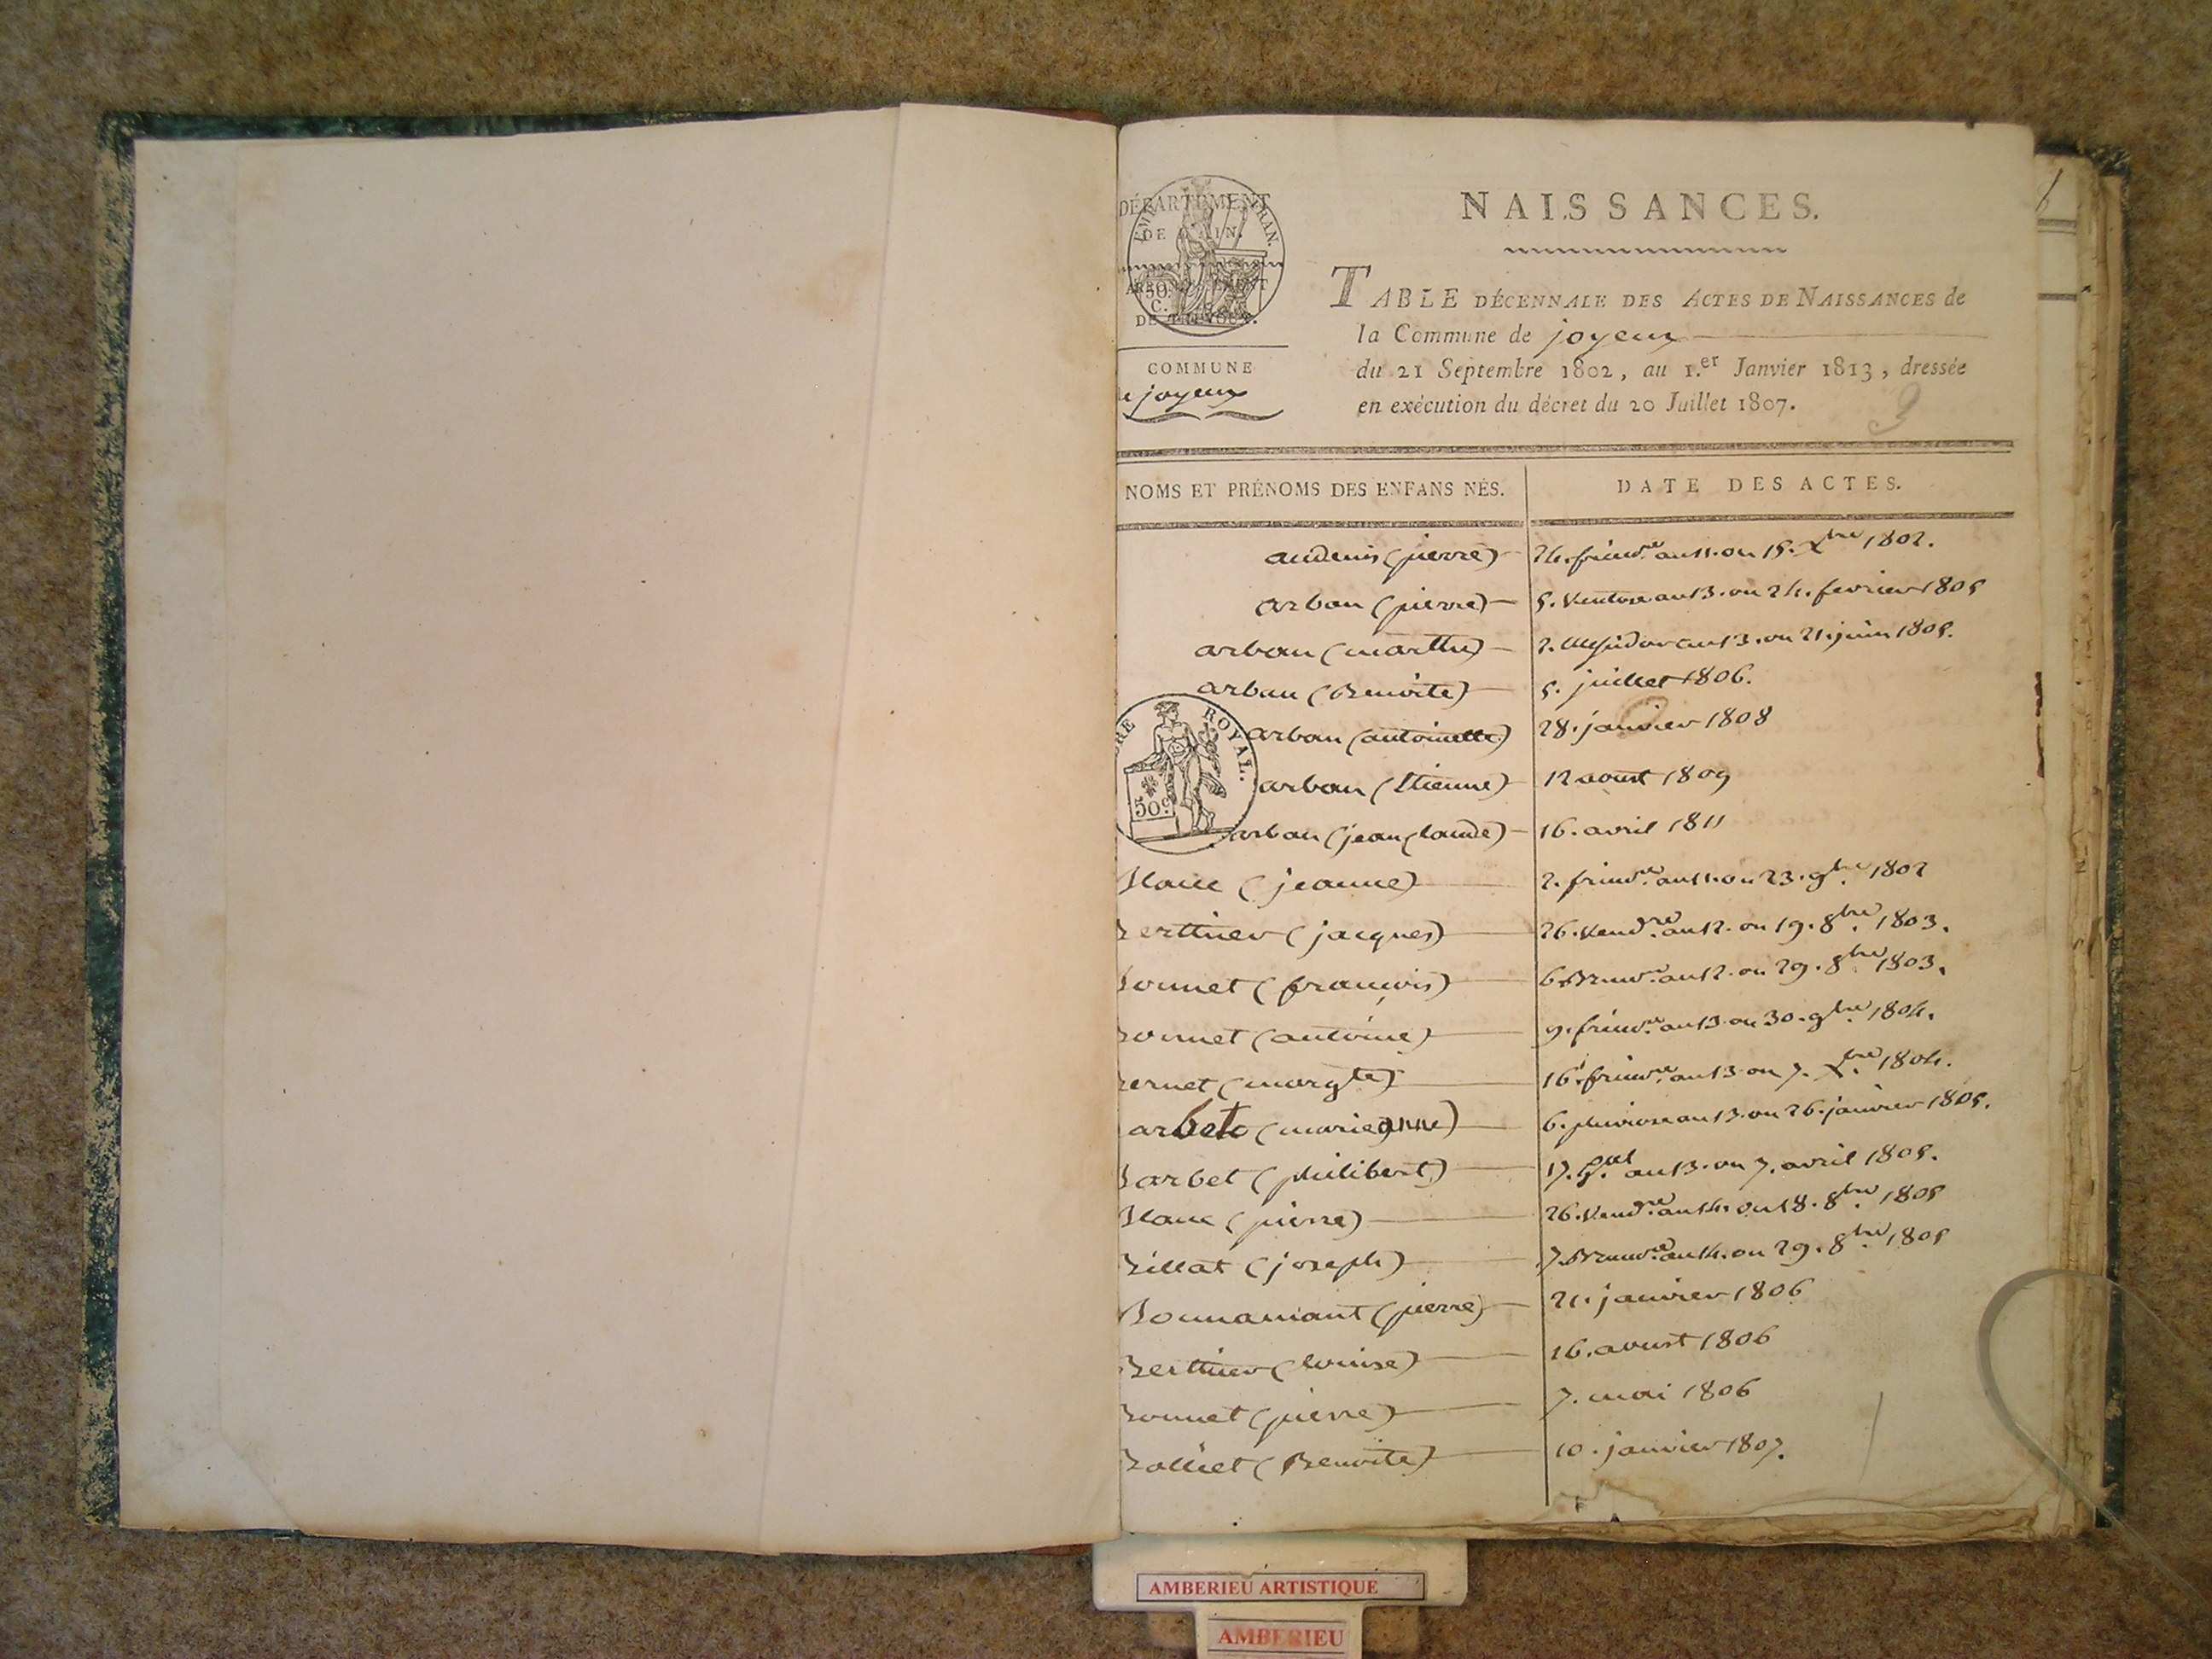 DÉPARTEMENT
DE L'AIN.
ARRONDISSEMENT
DE TRÉVOUX.
EMP. FRAN.
50
C.
COMMUNE
de joyeux
NAISSANCES.
TABLE DÉCENNALE DES ACTES DE NAISSANCES de
la Commune de joyeux
du 21 Septembre 1802, au 1.er Janvier 1813, dressée
en exécution du décret du 20 Juillet 1807.
3
NOMS ET PRÉNOMS DES ENFANS NÉS. DATE DES ACTES.
audenis (pierre) 24. frimre an 11. ou 15. Xbre 1802.
arban (pierre) 5. Ventose an 13. ou 24. fevrier 1805
arban (marthe) 2. Messidor an 13. ou 21. juin 1805.
arban (Benoite) 5. juillet 1806.
ROYAL.
50c
arban (antoinette) 28. janvier 1808
arban (Etienne) 12 aoust 1809
arban (jean Claude) 16. avril 1811
Blanc (jeanne) 2. frimre an 11. ou 23. 9bre 1802
Berthier (jacques) 26. Vendre an 12. ou 19. 8bre 1803.
Bonnet (françois) 6. Brumre an 12. ou 29. 8bre 1803.
Bonnet (antoine) 9. frimre an 13 ou 30. 9bre 1804.
ernet (margte) 16. frimre an 13 ou 7. Xbre 1804.
arbet (marie anne) 6. pluviose an 13. ou 26. janvier 1805.
Barbet (philibert) 17. gal an 13. ou 7. avril 1805.
Blanc (pierre) 26. Vendre an 14. ou 18. 8bre 1805
Billat (joseph) 7. Brumre an 14. ou 29. 8bre 1805
Bonnamant (pierre) 21. janvier 1806
Berthier (louise) 16. aoust 1806
Bonnet (pierre) 7. mai 1806
Bolliet (Benoite) 10. janvier 1807.
AMBERIEU ARTISTIQUE
AMBERIEU